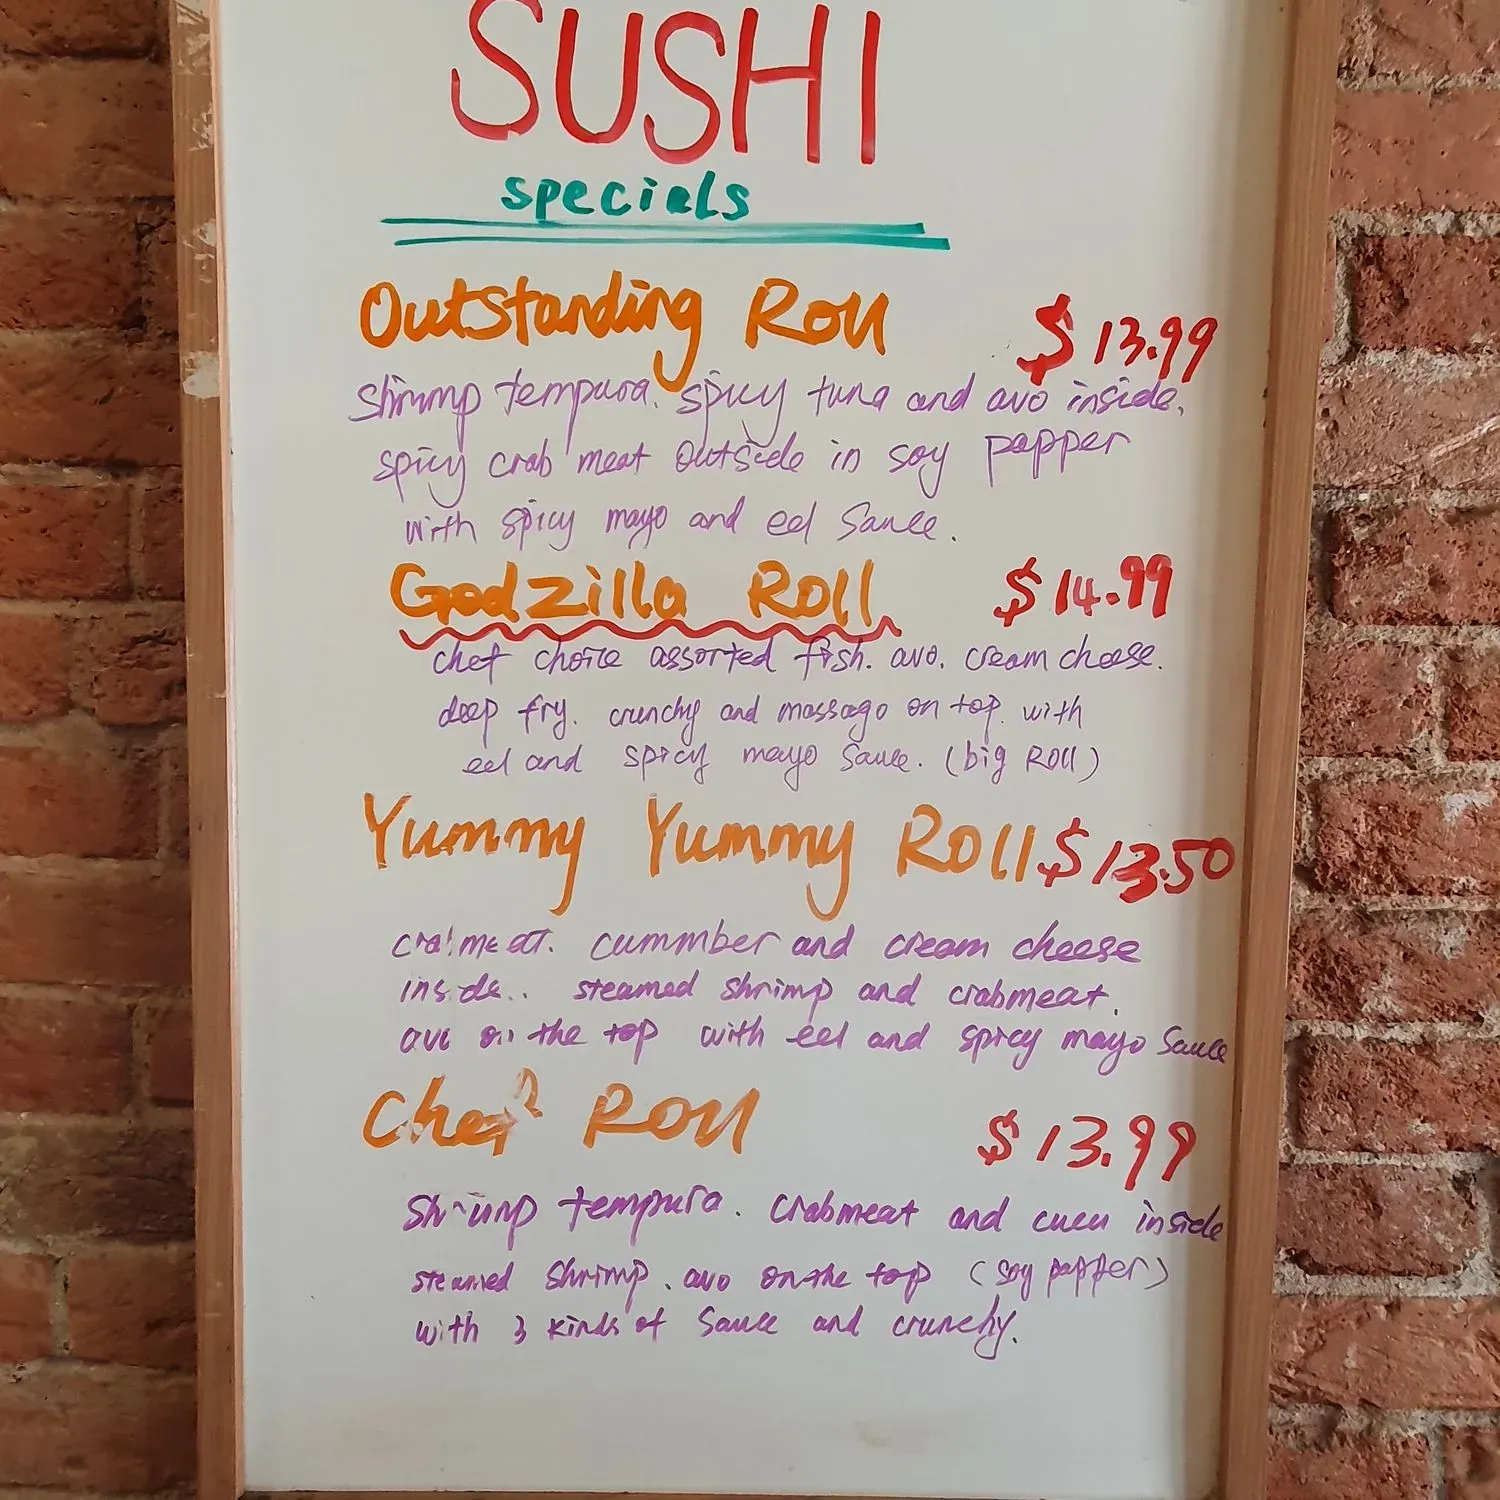 SUSHI
specials
Outstanding Roll $13.99
shrimp tempura. spicy tuna and avo inside.
spicy crab meat outside in soy papper
with spicy mayo and eel Sauce.
Godzilla Roll $14.99
chef choice assorted fish. avo. cream cheese.
deep fry. crunchy and massago on top. with
eel and spicy mayo Sauce. (big Roll)
Yummy Yummy Roll $13.50
crabmeat. cummber and cream cheese
inside.. steamed shrimp and crabmeat.
avo on the top with eel and spicy mayo Sauce
Chef Roll $13.99
Shrimp tempura. crabmeat and cucu inside
steamed shrimp. avo on the top (soy papper)
with 3 kinds of Sauce and crunchy.